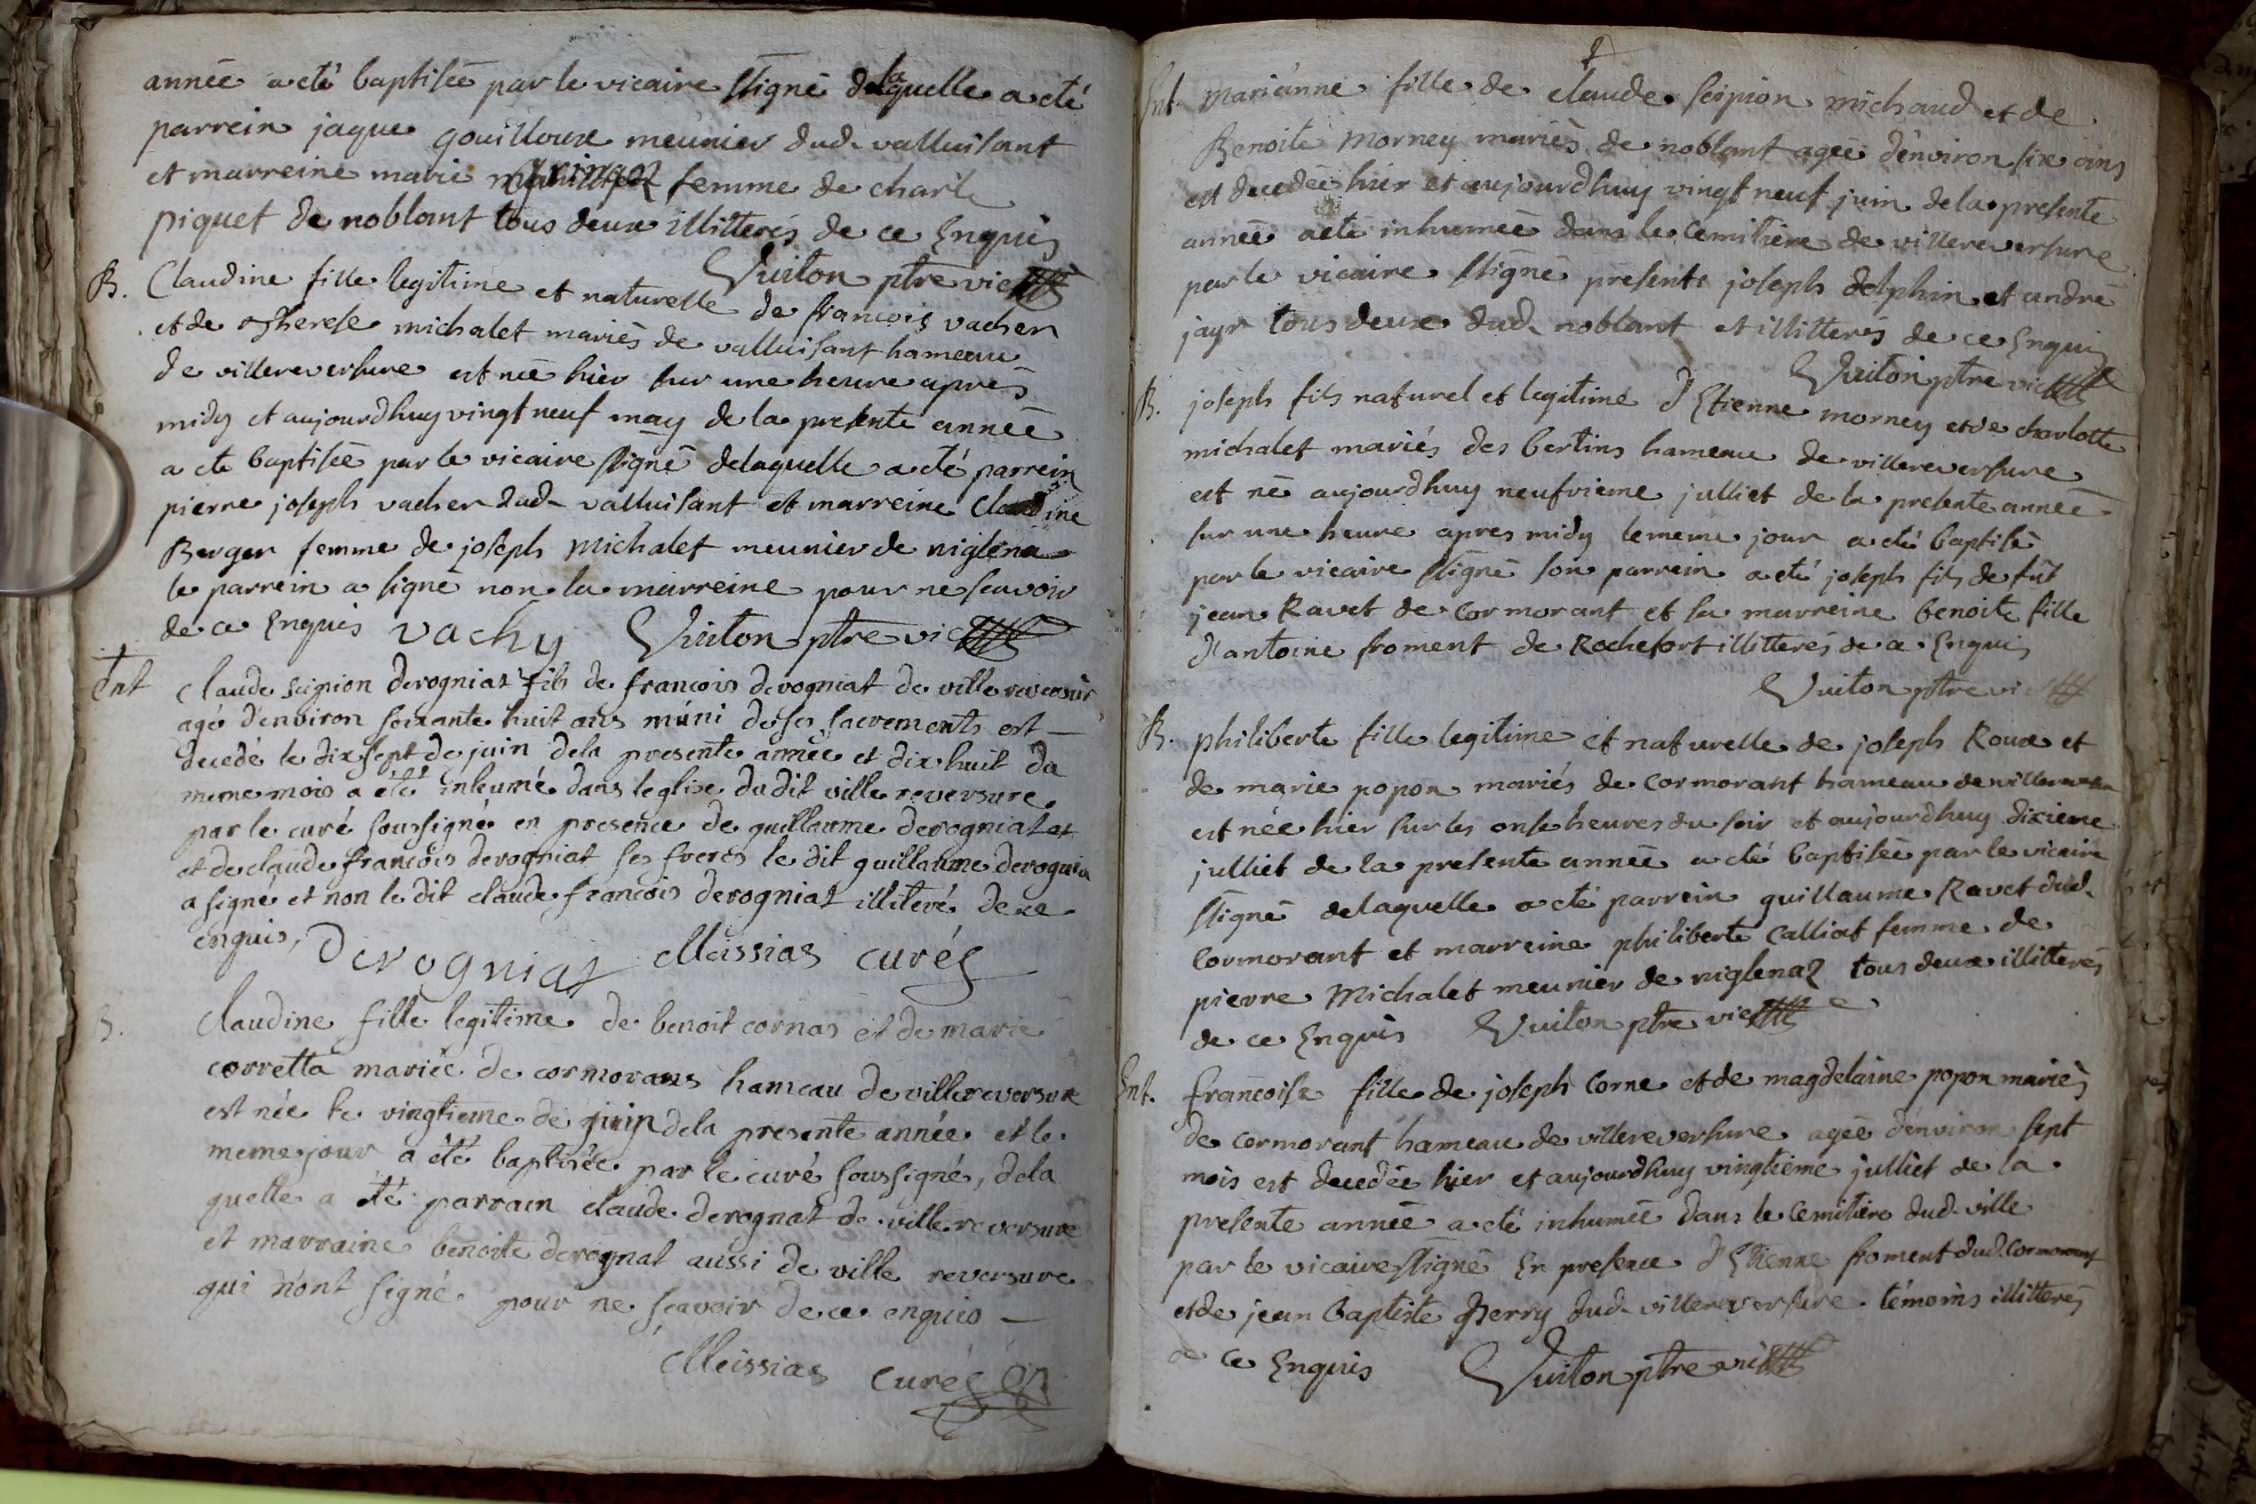 année a eté baptisée par le vicaire ssigné de laquelle a eté
parrein jaque gouilloux meunier dud. valluisant
et marreine marie femme de charle
piquet de noblant tous deux illitterés de ce Enquis
Vuiton ptre vic
B. Claudine fille legitime et naturelle de francois vacher
et de therese michalet mariés de valluisant hameau
de villereversure est née hier sur une heure apres
midy et aujourdhuy vingt neuf may de la presente année
a ete baptisée par le vicaire ssigné delaquelle a eté parrein
pierre joseph vacher dud. valluisant et marreine Claudine
Berger femme de joseph Michalet meunier de niglena
le parrein a signé non la marreine pour ne scavoir
de ce Enquis vachy Vuiton ptre vic
Ent Claude scipion derogniat fils de francois derogniat de ville reversure
agé d'environ soixante huit ans muni de ses sacrements est
decedé le dix sept de juin dela presente année et dix huit du
meme mois a été inhumé dans leglise du dit ville reversure
par le curé soussigné en presence de guillaume derogniat et
et de claude francois derogniat ses freres le dit guillaume derogniat
a signé et non le dit claude francois derogniat illiteré de ce
enquis, Derogniat Meissias curé
B. Claudine fille legitime de benoit cornas et de marie
corretta mariée de cormorans hameau de villereversure
est née le vingtieme de juin dela presente année et le
meme jour a été baptisée par le curé soussigné, dela
quelle a été parrain claude derognat de ville reversure
et marraine benoite derognat aussi de ville reversure
qui n'ont signé pour ne sçavoir de ce enquis
Meissias curé
Ent. Marianne fille de claude scipion michaud et de
Benoite Morney mariés de noblant agée d'environ six ans
est decedée hier et aujourdhuy vingt neuf juin de la presente
année a eté inhumée dans le cemitiere de villereversure
par le vicaire ssigné presents joseph delphin et andré
jayr tous deux dud. noblant et illitterés de ce Enquis
Vuiton ptre vic
B. joseph fils naturel et legitime d'Etienne morney et de charlotte
michalet mariés des bertins hameau de villereversure
est né aujourdhuy neufvieme julliet de la presente année
sur une heure apres midy le meme jour a eté baptisé
par le vicaire ssigné son parrein a eté joseph fils de fût
jean Ravet de cormorant et sa marreine benoite fille
d'antoine froment de Rochefort illitterés de ce Enquis
Vuiton ptre vic
B. philiberte fille legitime et naturelle de joseph Roux et
de marie popon mariés de cormorant hameau de villereversure
est née hier sur les onse heures du soir et aujourdhuy dixieme
julliet de la presente année a eté baptisée par le vicaire
ssigné delaquelle a eté parrein guillaume Ravet dud.
cormorant et marreine philiberte Calliat femme de
pierre Michalet meunier de niglenaz tous deux illitterés
de ce Enquis Vuiton ptre vic
Ent. francoise fille de joseph Corne et de magdelaine popon mariés
de cormorant hameau de villereversure agée d'environ sept
mois est decedée hier et aujourdhuy vingtieme julliet de la
presente année a eté inhumée dans le cemitiere dud. ville
par le vicaire ssigné En presence d'Etienne froment dud. cormorant
et de jean baptiste dud. villereversure témoins illitterés
de ce Enquis Vuiton ptre vic